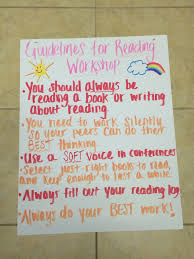 Guidelines for Reading
Workshop
• You should always be
reading a book or writing
about reading.
• You need to work silently
so your peers can do their
BEST thinking.
• Use a SOFT voice in conferences
• Select just right books to read,
and keep enough to last a while.
• Always fill out your reading log
• Always do your BEST work!